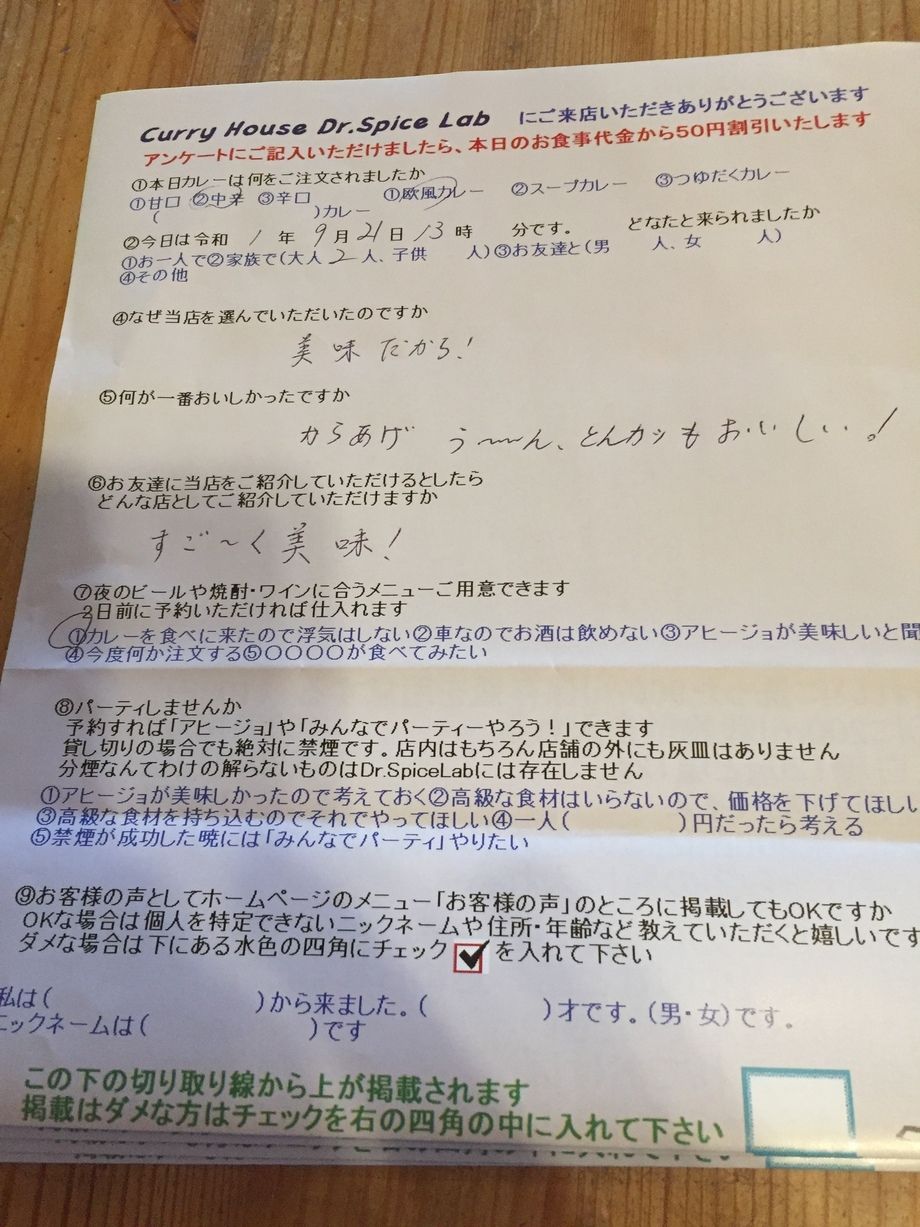 Curry House Dr.Spice Lab にご来店いただきありがとうございます
アンケートにご記入いただけましたら、本日のお食事代金から50円割引いたします
①本日カレーは何をご注文されましたか
①甘口 ②中辛 ③辛口 ①欧風カレー ②スープカレー ③つゆだくカレー
( )カレー
②今日は令和 1 年 9 月 21 日 13 時 分です。 どなたと来られましたか
①お一人で②家族で(大人 2 人、子供 人)③お友達と(男 人、女 人)
④その他
④なぜ当店を選んでいただいたのですか
美味だから!
⑤何が一番おいしかったですか
からあげ う〜〜ん、とんカツもおいしい。!
⑥お友達に当店をご紹介していただけるとしたら
どんな店としてご紹介していただけますか
すご〜く美味!
⑦夜のビールや焼酎・ワインに合うメニューご用意できます
2日前に予約いただければ仕入れます
①カレーを食べに来たので浮気はしない②車なのでお酒は飲めない③アヒージョが美味しいと聞
④今度何か注文する⑤〇〇〇〇が食べてみたい
⑧パーティしませんか
予約すれば「アヒージョ」や「みんなでパーティーやろう!」できます
貸し切りの場合でも絶対に禁煙です。店内はもちろん店舗の外にも灰皿はありません
分煙なんてわけの解らないものはDr.SpiceLabには存在しません
①アヒージョが美味しかったので考えておく②高級な食材はいらないので、価格を下げてほしい
③高級な食材を持ち込むのでそれでやってほしい④一人( )円だったら考える
⑤禁煙が成功した暁には「みんなでパーティ」やりたい
⑨お客様の声としてホームページのメニュー「お客様の声」のところに掲載してもOKですか
OKな場合は個人を特定できないニックネームや住所・年齢など教えていただくと嬉しいです
ダメな場合は下にある水色の四角にチェック を入れて下さい
私は( )から来ました。( )才です。(男・女)です。
ニックネームは( )です
この下の切り取り線から上が掲載されます
掲載はダメな方はチェックを右の四角の中に入れて下さい